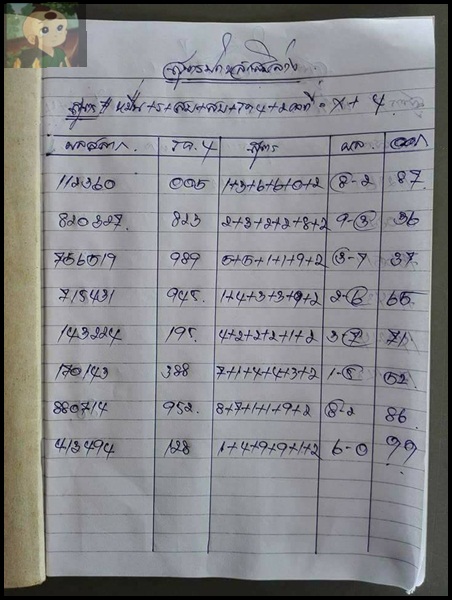 สูตร # หมื่น+ร+สิบ+สิบ+รล4+2คงที่ = x + 4
ผลสลาก รล.4 สูตร ผล ออก
112360 005 1+3+6+6+0+2 8-2 87
820327 823 2+3+2+2+8+2 9-3 36
756519 989 5+5+1+1+9+2 3-7 37
715431 945 1+4+3+3+9+2 2-6 65
143224 195 4+2+2+2+1+2 3-7 71
170143 388 7+1+4+4+3+2 1-5 52
880714 952 8+7+1+1+9+2 8-2 86
413494 128 1+4+9+9+1+2 6-0 ??